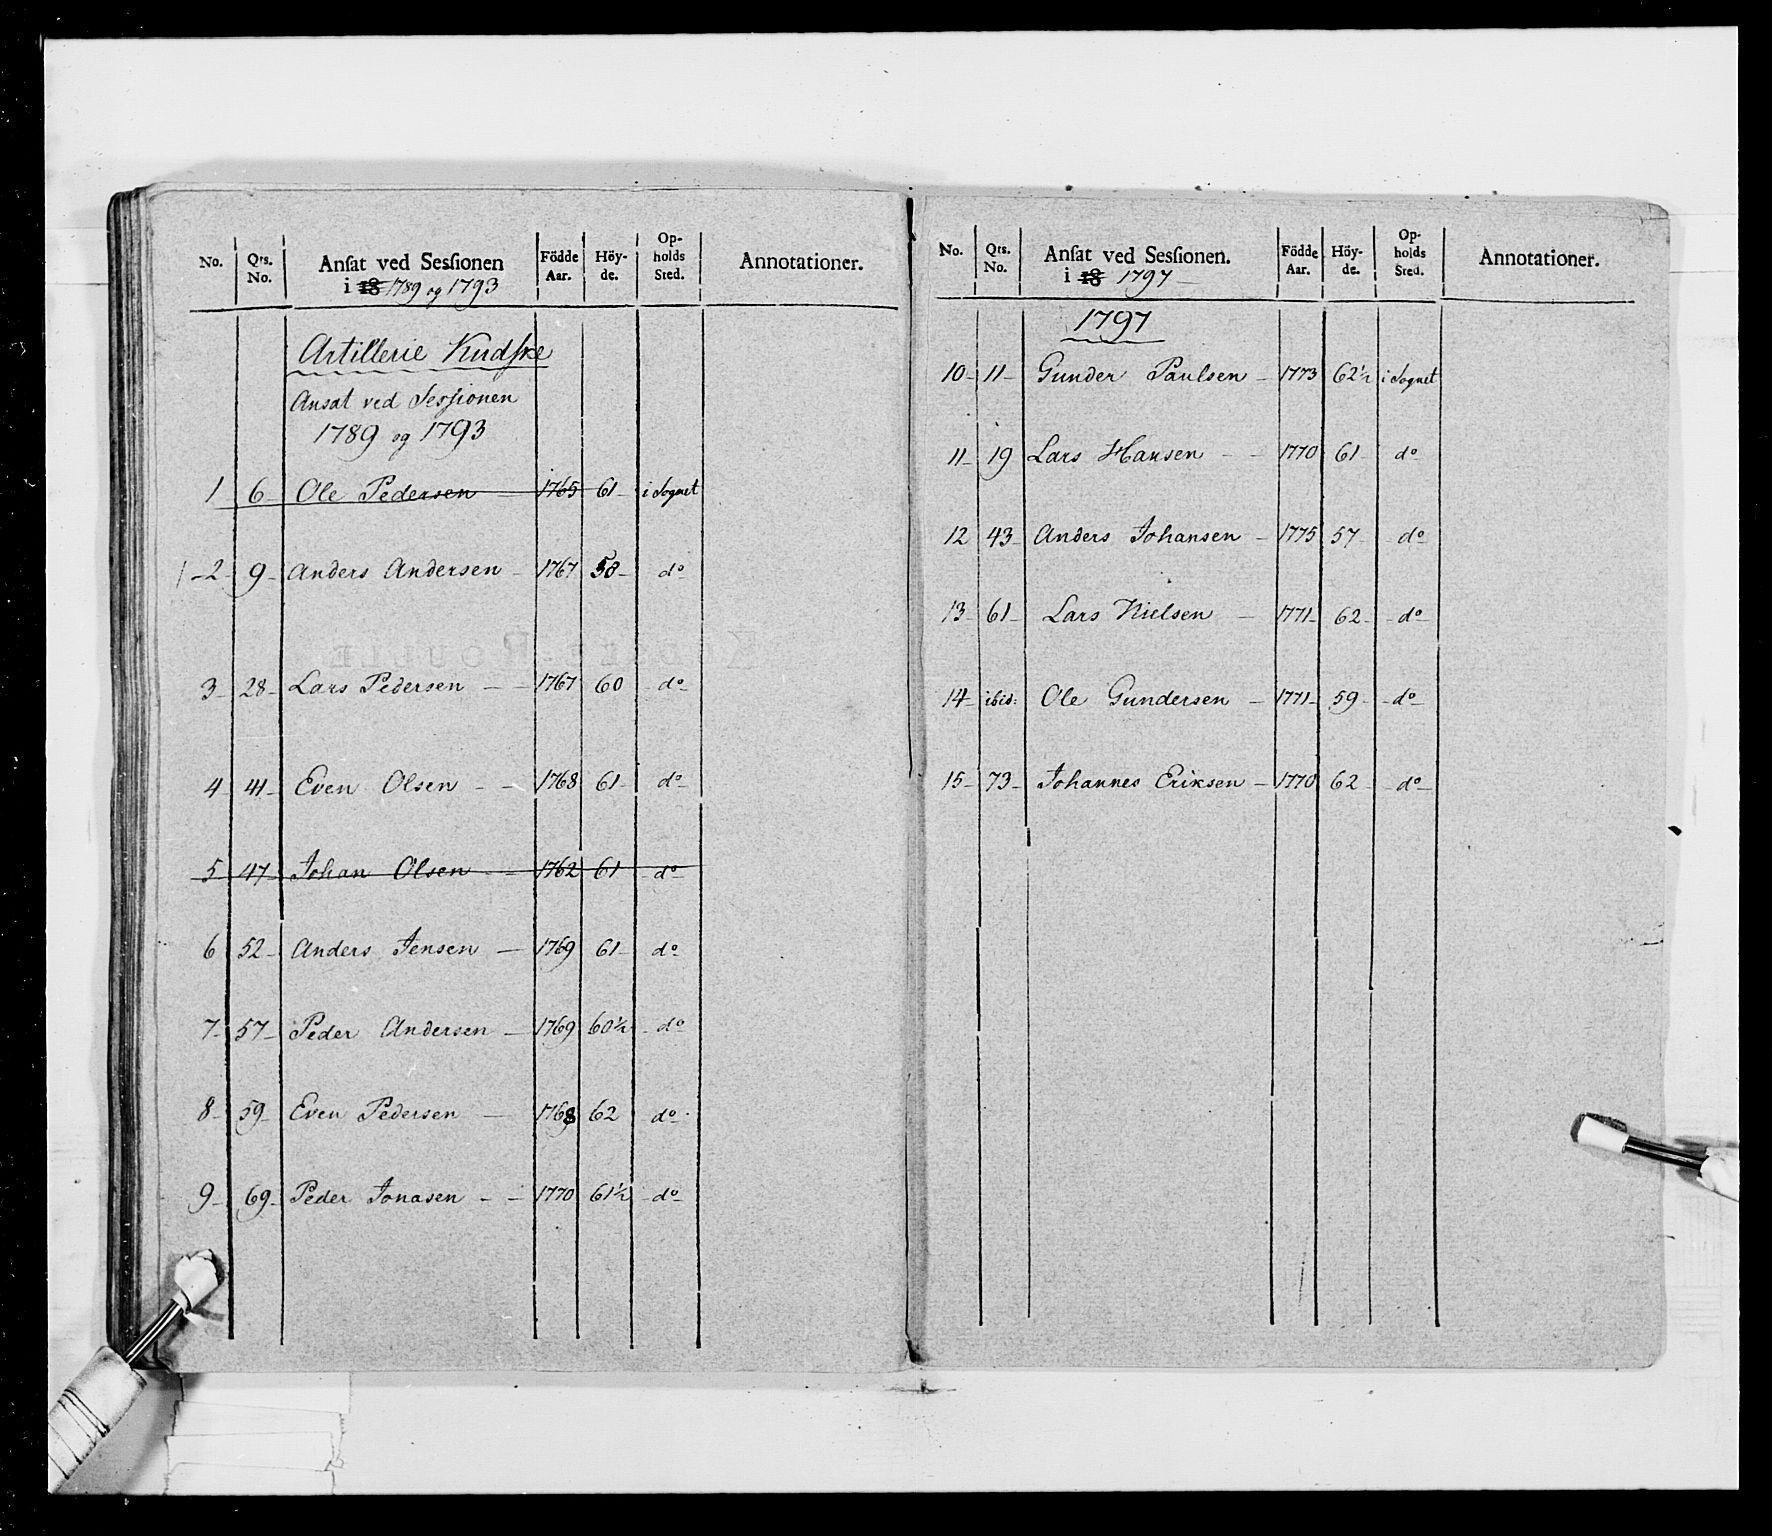 No. Qts. No. Ansat ved Sessionen i 18 1789 og 1793 Födde Aar. Höy-de. Op-holds Sted. Annotationer.
Artillerie Kudske
Ansat ved Sessionen
1789 og 1793
1 6 Ole Pedersen 1765 61 i Sognet
2 9 Anders Andersen 1767 58 do
3 28 Lars Pedersen 1767 60 do
4 41 Even Olsen 1768 61 do
5 47 Johan Olsen 1762 61 do
6 52 Anders Jensen 1769 61 do
7 57 Peder Andersen 1769 60½ do
8 59 Even Pedersen 1768 62 do
9 69 Peder Jonasen 1770 61½ do
No. Qts. No. Ansat ved Sessionen. i 18 1797 Födde Aar. Höy-de. Op-holds Sted. Annotationer.
1797
10 11 Gunder Paulsen 1773 62½ i Sognet
11 19 Lars Hansen 1770 61 do
12 43 Anders Johansen 1775 57 do
13 61 Lars Nielsen 1771 62 do
14 ibid: Ole Gundersen 1771 59 do
15 73 Johannes Eriksen 1770 62 do